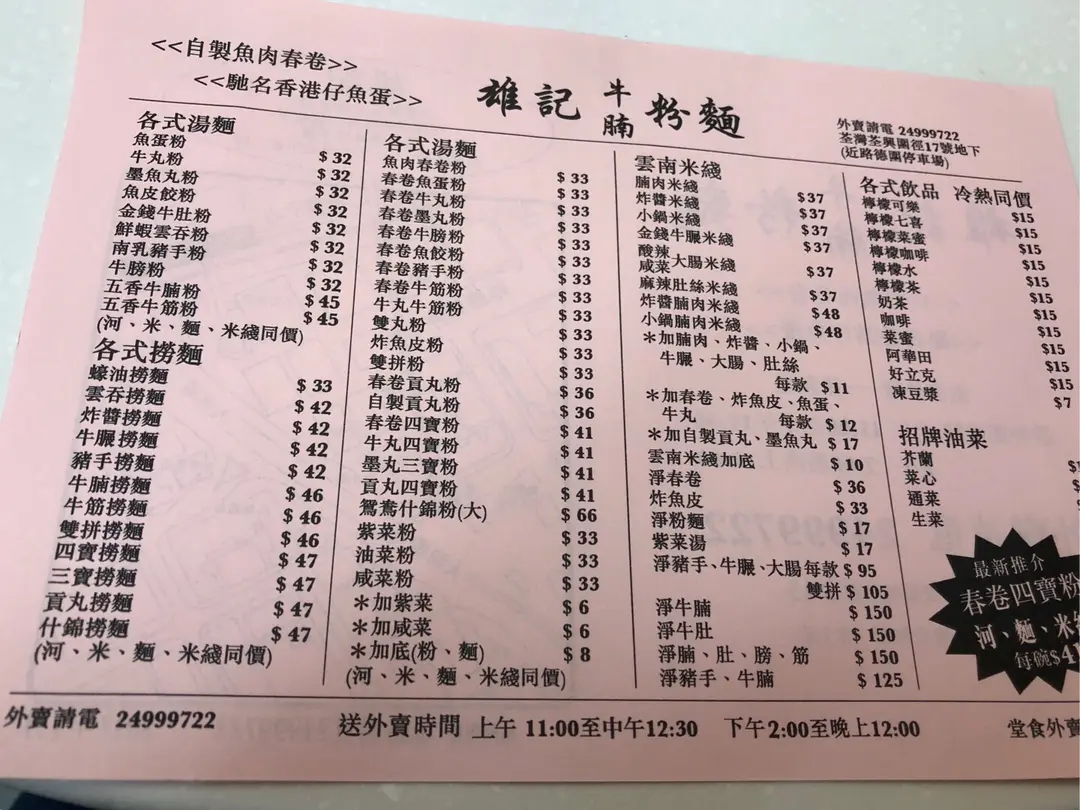 <<自製魚肉春卷>>
<<馳名香港仔魚蛋>>
雄記牛腩粉麵
外賣請電 24999722
荃灣荃興圍徑17號地下
(近路德圍停車場)
各式湯麵
魚蛋粉 $32
牛丸粉 $32
墨魚丸粉 $32
魚皮餃粉 $32
金錢牛肚粉 $32
鮮蝦雲吞粉 $32
南乳豬手粉 $32
牛膀粉 $32
五香牛腩粉 $45
五香牛筋粉 $45
(河、米、麵、米綫同價)
各式撈麵
蠔油撈麵 $33
雲吞撈麵 $42
炸醬撈麵 $42
牛𦟌撈麵 $42
豬手撈麵 $42
牛腩撈麵 $46
牛筋撈麵 $46
雙拼撈麵 $46
四寶撈麵 $47
三寶撈麵 $47
貢丸撈麵 $47
什錦撈麵 $47
(河、米、麵、米綫同價)
各式湯麵
魚肉春卷粉 $33
春卷魚蛋粉 $33
春卷牛丸粉 $33
春卷墨丸粉 $33
春卷牛膀粉 $33
春卷魚餃粉 $33
春卷豬手粉 $33
春卷牛筋粉 $33
牛丸牛筋粉 $33
雙丸粉 $33
炸魚皮粉 $33
雙拼粉 $33
春卷貢丸粉 $36
自製貢丸粉 $36
春卷四寶粉 $41
牛丸四寶粉 $41
墨丸三寶粉 $41
貢丸四寶粉 $41
鴛鴦什錦粉(大) $66
紫菜粉 $33
油菜粉 $33
咸菜粉 $33
*加紫菜 $6
*加咸菜 $6
*加底(粉、麵) $8
(河、米、麵、米綫同價)
雲南米綫
腩肉米綫 $37
炸醬米綫 $37
小鍋米綫 $37
金錢牛𦟌米綫 $37
酸辣
咸菜 大腸米綫 $37
麻辣肚絲米綫 $37
炸醬腩肉米綫 $48
小鍋腩肉米綫 $48
*加腩肉、炸醬、小鍋、
牛𦟌、大腸、肚絲
每款 $11
*加春卷、炸魚皮、魚蛋、
牛丸 每款 $12
*加自製貢丸、墨魚丸 $17
雲南米綫加底 $10
淨春卷 $36
炸魚皮 $33
淨粉麵 $17
紫菜湯 $17
淨豬手、牛𦟌、大腸每款 $95
雙拼 $105
淨牛腩 $150
淨牛肚 $150
淨腩、肚、膀、筋 $150
淨豬手、牛腩 $125
各式飲品 冷熱同價
檸檬可樂 $15
檸檬七喜 $15
檸檬菜蜜 $15
檸檬咖啡 $15
檸檬水 $15
檸檬茶 $15
奶茶 $15
咖啡 $15
菜蜜 $15
阿華田 $15
好立克 $15
凍豆漿 $7
招牌油菜
芥蘭
菜心
通菜
生菜
最新推介
春卷四寶粉
河、麵、米
每碗$41
外賣請電 24999722
送外賣時間 上午 11:00至中午12:30 下午2:00至晚上12:00
堂食外賣